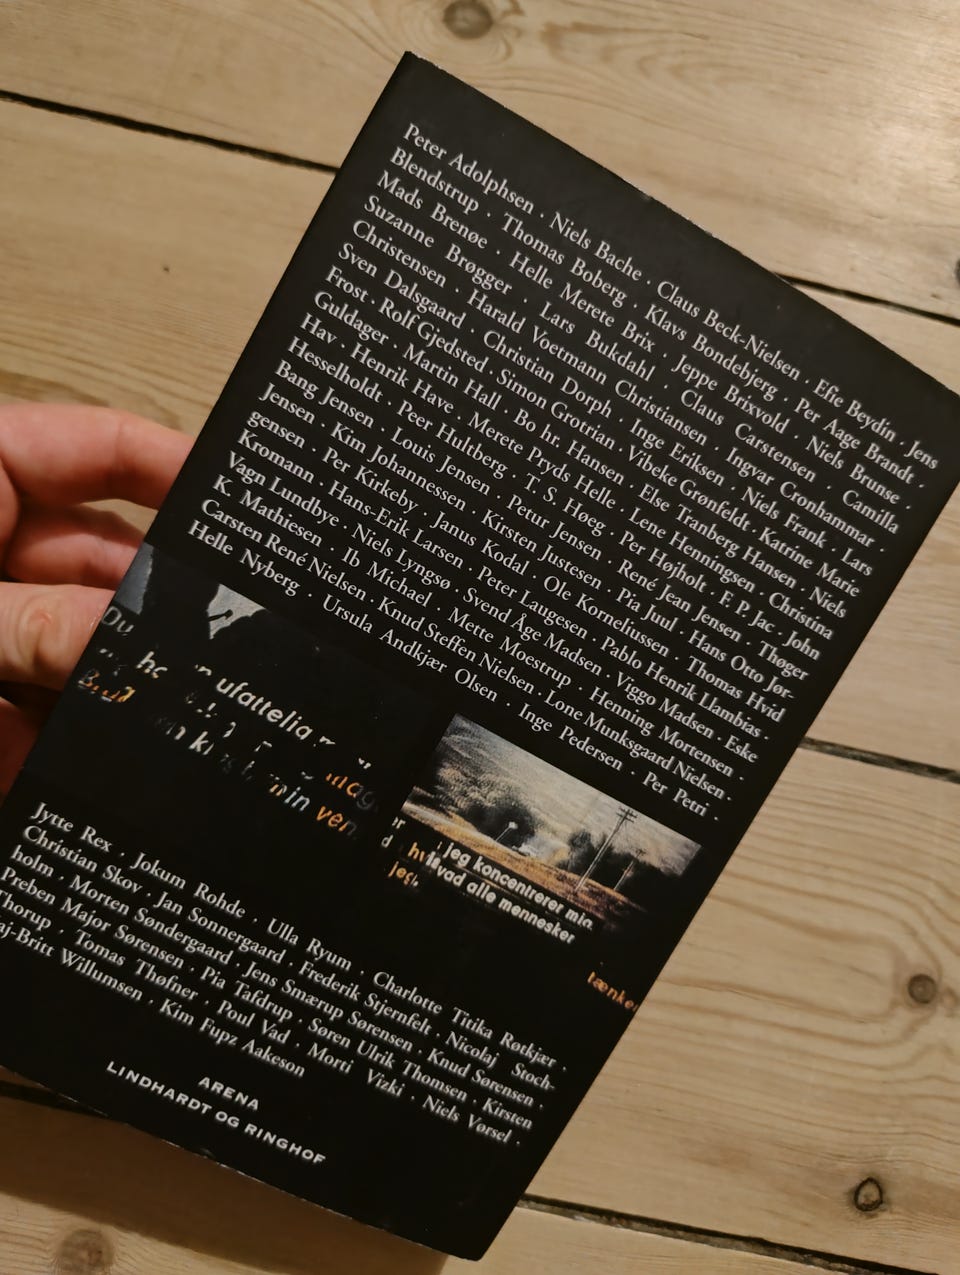 Peter Adolphsen · Niels Bache · Claus Beck-Nielsen · Efie Beydin · Jens
Blendstrup · Thomas Boberg · Klavs Bondebjerg · Per Aage Brandt ·
Mads Brenøe · Helle Merete Brix · Jeppe Brixvold · Niels Brunse ·
Suzanne Brøgger · Lars Bukdahl · Claus Carstensen · Camilla
Christensen · Harald Voetmann Christiansen · Ingvar Cronhammar ·
Sven Dalsgaard · Christian Dorph · Inge Eriksen · Niels Frank · Lars
Frost · Rolf Gjedsted · Simon Grotrian · Vibeke Grønfeldt · Katrine Marie
Guldager · Martin Hall · Bo hr. Hansen · Else Tranberg Hansen · Niels
Hav · Henrik Have · Merete Pryds Helle · Lene Henningsen · Christina
Hesselholdt · Peer Hultberg · T. S. Høeg · Per Højholt · F. P. Jac · John
Bang Jensen · Louis Jensen · Petur Jensen · René Jean Jensen · Thøger
Jensen · Kim Johannessen · Kirsten Justesen · Pia Juul · Hans Otto Jør-
gensen · Per Kirkeby · Janus Kodal · Ole Korneliussen · Thomas Hvid
Kromann · Hans-Erik Larsen · Peter Laugesen · Pablo Henrik Llambías ·
Vagn Lundbye · Niels Lyngsø · Svend Åge Madsen · Viggo Madsen · Eske
K. Mathiesen · Ib Michael · Mette Moestrup · Henning Mortensen ·
Carsten René Nielsen · Knud Steffen Nielsen · Lone Munksgaard Nielsen ·
Helle Nyberg · Ursula Andkjær Olsen · Inge Pedersen · Per Petri ·
Du
ufattelig
min ven
jeg koncentrerer mig
hvad alle mennesker
jeg
tænker
Jytte Rex · Jokum Rohde · Ulla Ryum · Charlotte Titika Røtkjær ·
Christian Skov · Jan Sonnergaard · Frederik Stjernfelt · Nicolaj Stoch-
holm · Morten Søndergaard · Jens Smærup Sørensen · Knud Sørensen ·
Preben Major Sørensen · Pia Tafdrup · Søren Ulrik Thomsen · Kirsten
Thorup · Tomas Thøfner · Poul Vad · Morti Vizki · Niels Vørsel ·
Maj-Britt Willumsen · Kim Fupz Aakeson
ARENA
LINDHARDT OG RINGHOF